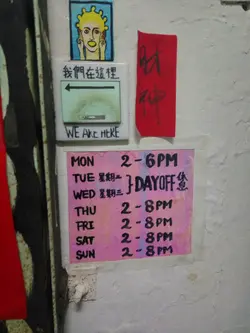 我們在這裡
WE ARE HERE
財神
MON 2-6PM
TUE 星期二 } DAY OFF 休息
WED 星期三
THU 2-8PM
FRI 2-8PM
SAT 2-8PM
SUN 2-8PM